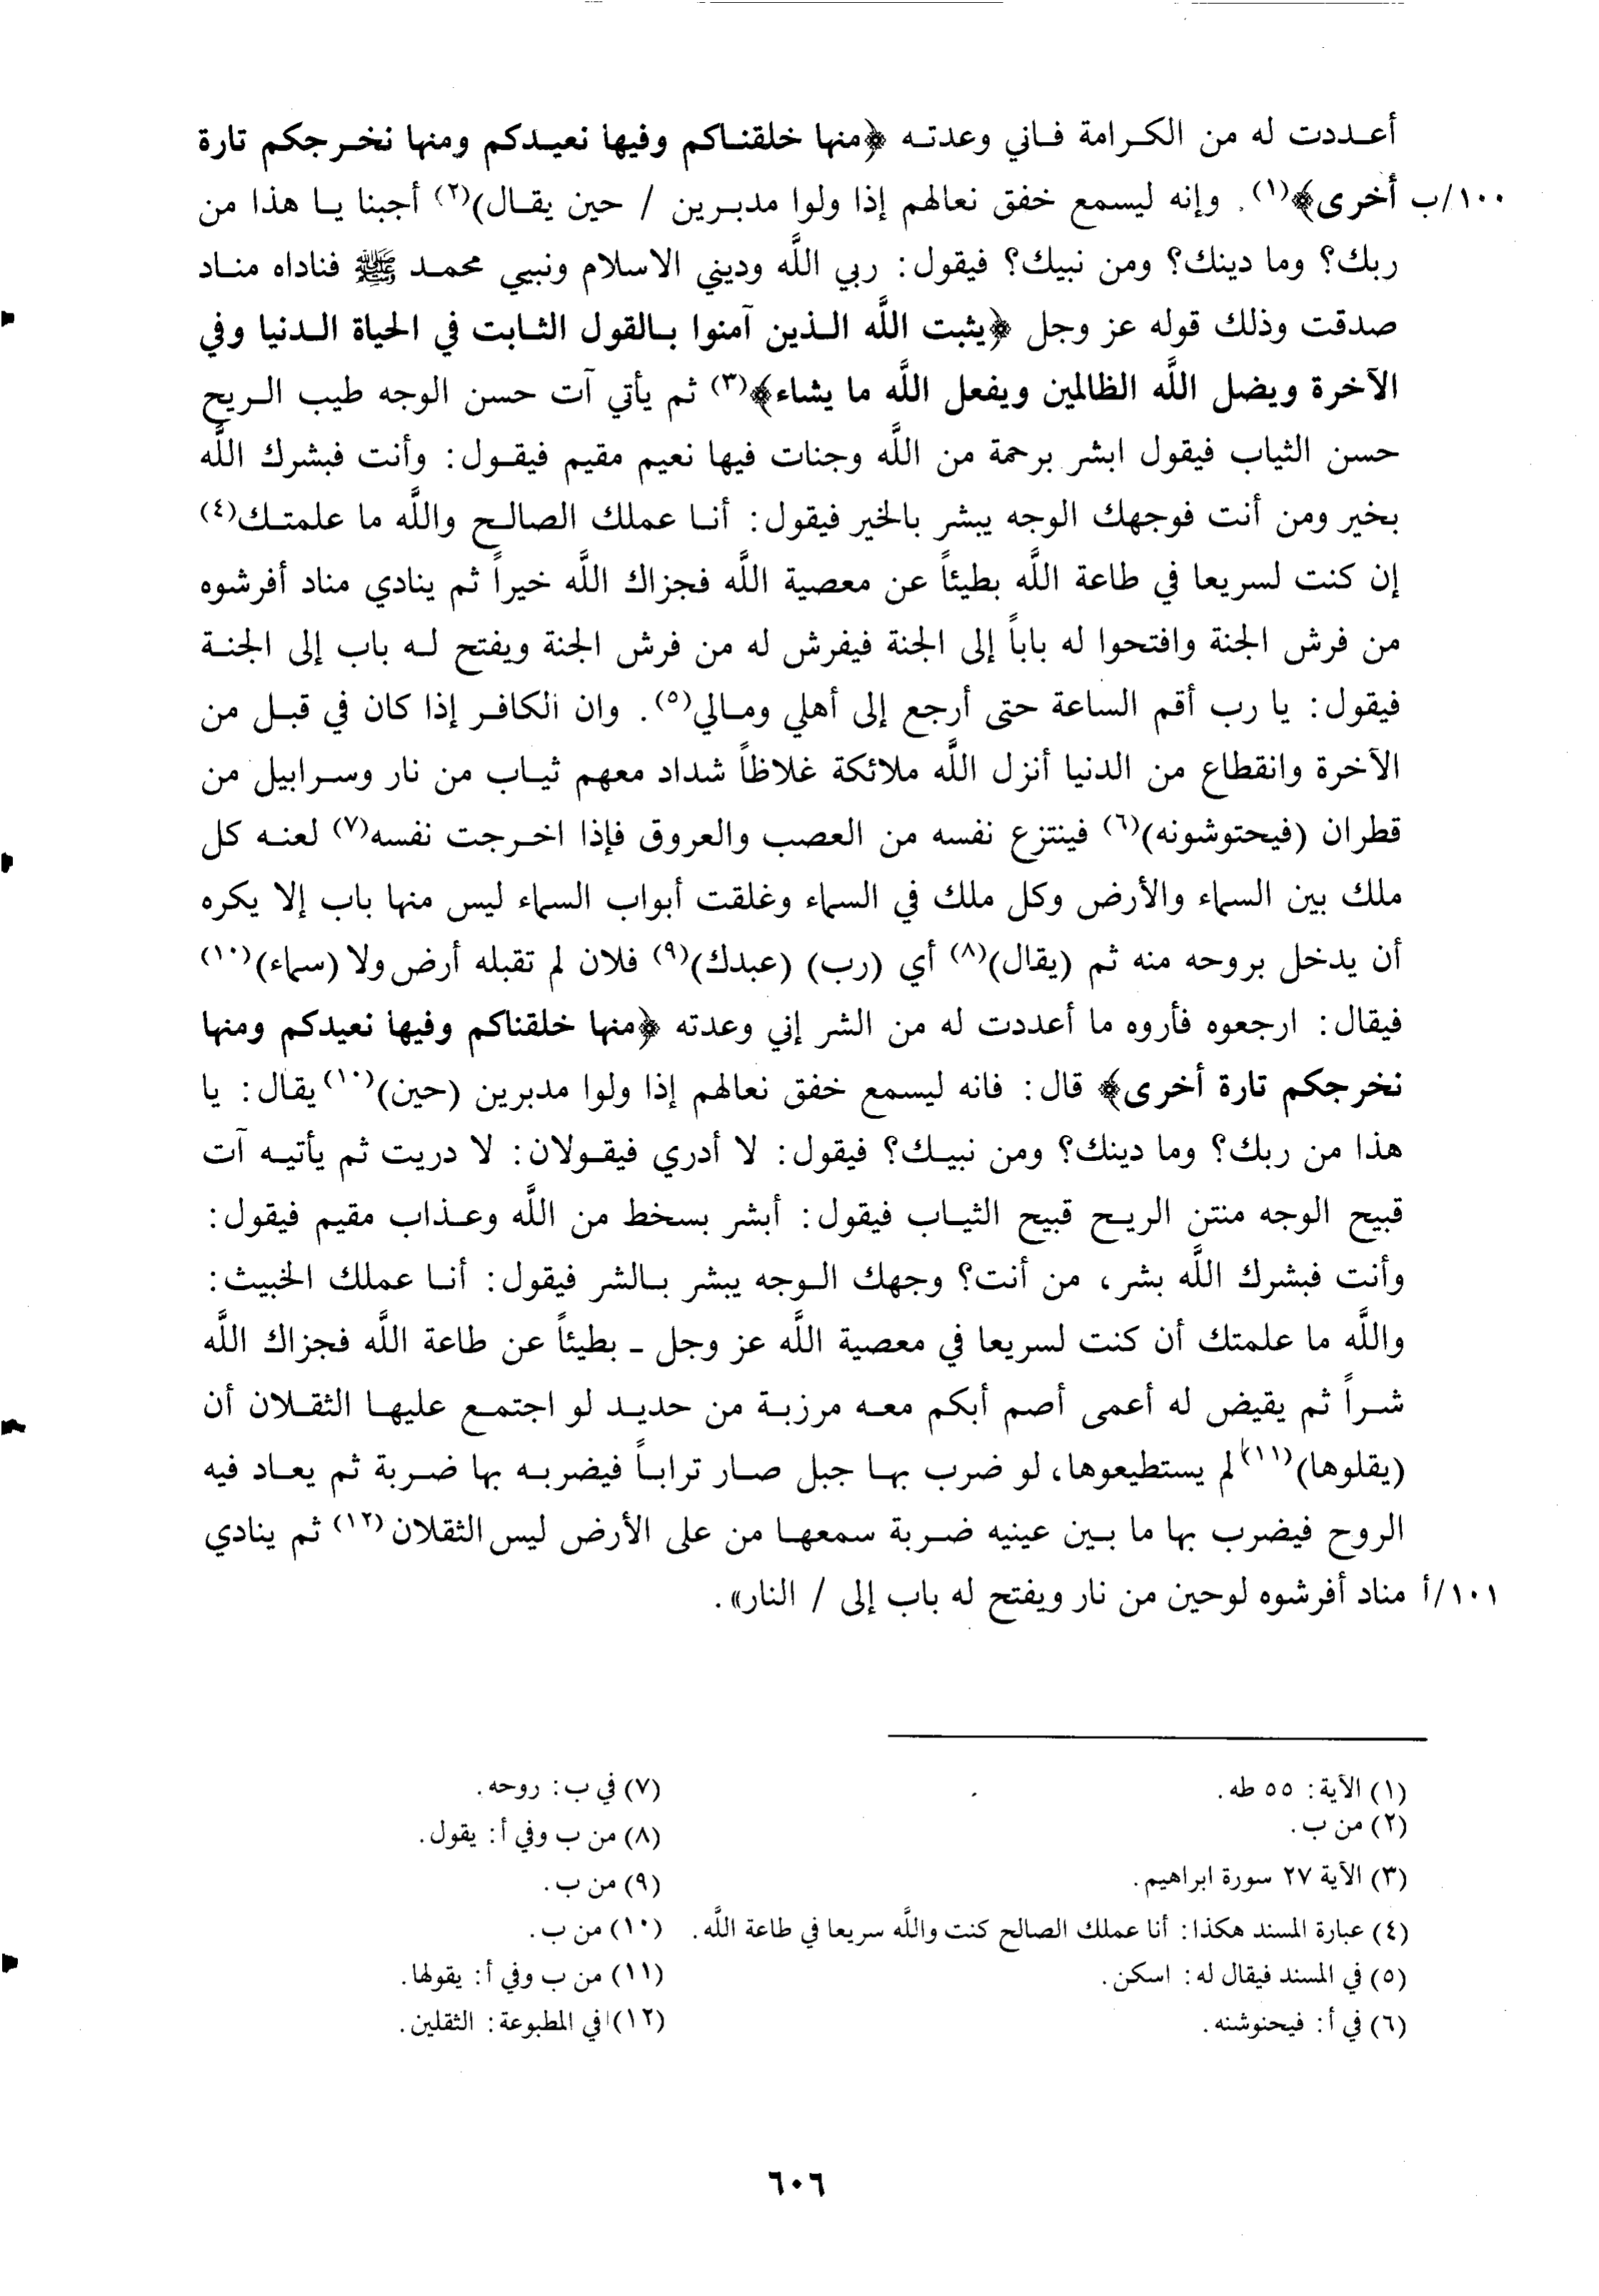 أعددت له من الكرامة فاني وعدته ﴿منها خلقناكم وفيها نعيدكم ومنها نخرجكم تارة
١٠٠/ب أخرى﴾(١). وإنه ليسمع خفق نعالهم إذا ولوا مدبرين / حين يقال)(٢) أجبنا يا هذا من
ربك؟ وما دينك؟ ومن نبيك؟ فيقول: ربي اللَّه وديني الاسلام ونبيي محمد ﷺ فناداه مناد
صدقت وذلك قوله عز وجل ﴿يثبت اللَّه الذين آمنوا بالقول الثابت في الحياة الدنيا وفي
الآخرة ويضل اللَّه الظالمين ويفعل اللَّه ما يشاء﴾(٣) ثم يأتي آت حسن الوجه طيب الريح
حسن الثياب فيقول ابشر برحمة من اللَّه وجنات فيها نعيم مقيم فيقول: وأنت فبشرك اللَّه
بخير ومن أنت فوجهك الوجه يبشر بالخير فيقول: أنا عملك الصالح واللَّه ما علمتك(٤)
إن كنت لسريعا في طاعة اللَّه بطيئاً عن معصية اللَّه فجزاك اللَّه خيراً ثم ينادي مناد أفرشوه
من فرش الجنة وافتحوا له باباً إلى الجنة فيفرش له من فرش الجنة ويفتح له باب إلى الجنة
فيقول: يا رب أقم الساعة حتى أرجع إلى أهلي ومالي(٥). وان الكافر إذا كان في قبل من
الآخرة وانقطاع من الدنيا أنزل اللَّه ملائكة غلاظاً شداد معهم ثياب من نار وسرابيل من
قطران (فيحتوشونه)(٦) فينتزع نفسه من العصب والعروق فإذا اخرجت نفسه(٧) لعنه كل
ملك بين السماء والأرض وكل ملك في السماء وغلقت أبواب السماء ليس منها باب إلا يكره
أن يدخل بروحه منه ثم (يقال)(٨) أي (رب) (عبدك)(٩) فلان لم تقبله أرض ولا (سماء)(١٠)
فيقال: ارجعوه فأروه ما أعددت له من الشر إني وعدته ﴿منها خلقناكم وفيها نعيدكم ومنها
نخرجكم تارة أخرى﴾ قال: فانه ليسمع خفق نعالهم إذا ولوا مدبرين (حين)(١٠) يقال: يا
هذا من ربك؟ وما دينك؟ ومن نبيك؟ فيقول: لا أدري فيقولان: لا دريت ثم يأتيه آت
قبيح الوجه منتن الريح قبيح الثياب فيقول: أبشر بسخط من اللَّه وعذاب مقيم فيقول:
وأنت فبشرك اللَّه بشر، من أنت؟ وجهك الوجه يبشر بالشر فيقول: أنا عملك الخبيث:
واللَّه ما علمتك أن كنت لسريعا في معصية اللَّه عز وجل ـ بطيئاً عن طاعة اللَّه فجزاك اللَّه
شراً ثم يقيض له أعمى أصم أبكم معه مرزبة من حديد لو اجتمع عليها الثقلان أن
(يقلوها)(١١) لم يستطيعوها، لو ضرب بها جبل صار تراباً فيضربه بها ضربة ثم يعاد فيه
الروح فيضرب بها ما بين عينيه ضربة سمعها من على الأرض ليس الثقلان(١٢) ثم ينادي
١٠١/أ مناد أفرشوه لوحين من نار ويفتح له باب إلى / النار».
(١) الآية: ٥٥ طه.
(٢) من ب.
(٣) الآية ٢٧ سورة ابراهيم.
(٤) عبارة المسند هكذا: أنا عملك الصالح كنت واللَّه سريعا في طاعة اللَّه.
(٥) في المسند فيقال له: اسكن.
(٦) في أ: فيحنوشنه.
(٧) في ب: روحه.
(٨) من ب وفي أ: يقول.
(٩) من ب.
(١٠) من ب.
(١١) من ب وفي أ: يقولها.
(١٢) في المطبوعة: الثقلين.
٦٠٦